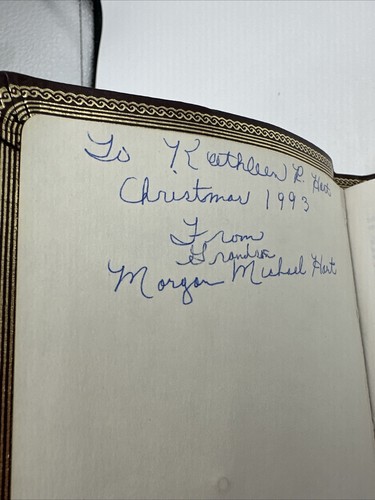 To Kathleen R. Hart
Christmas 1993
From
Grandson
Morgan Michael Hart